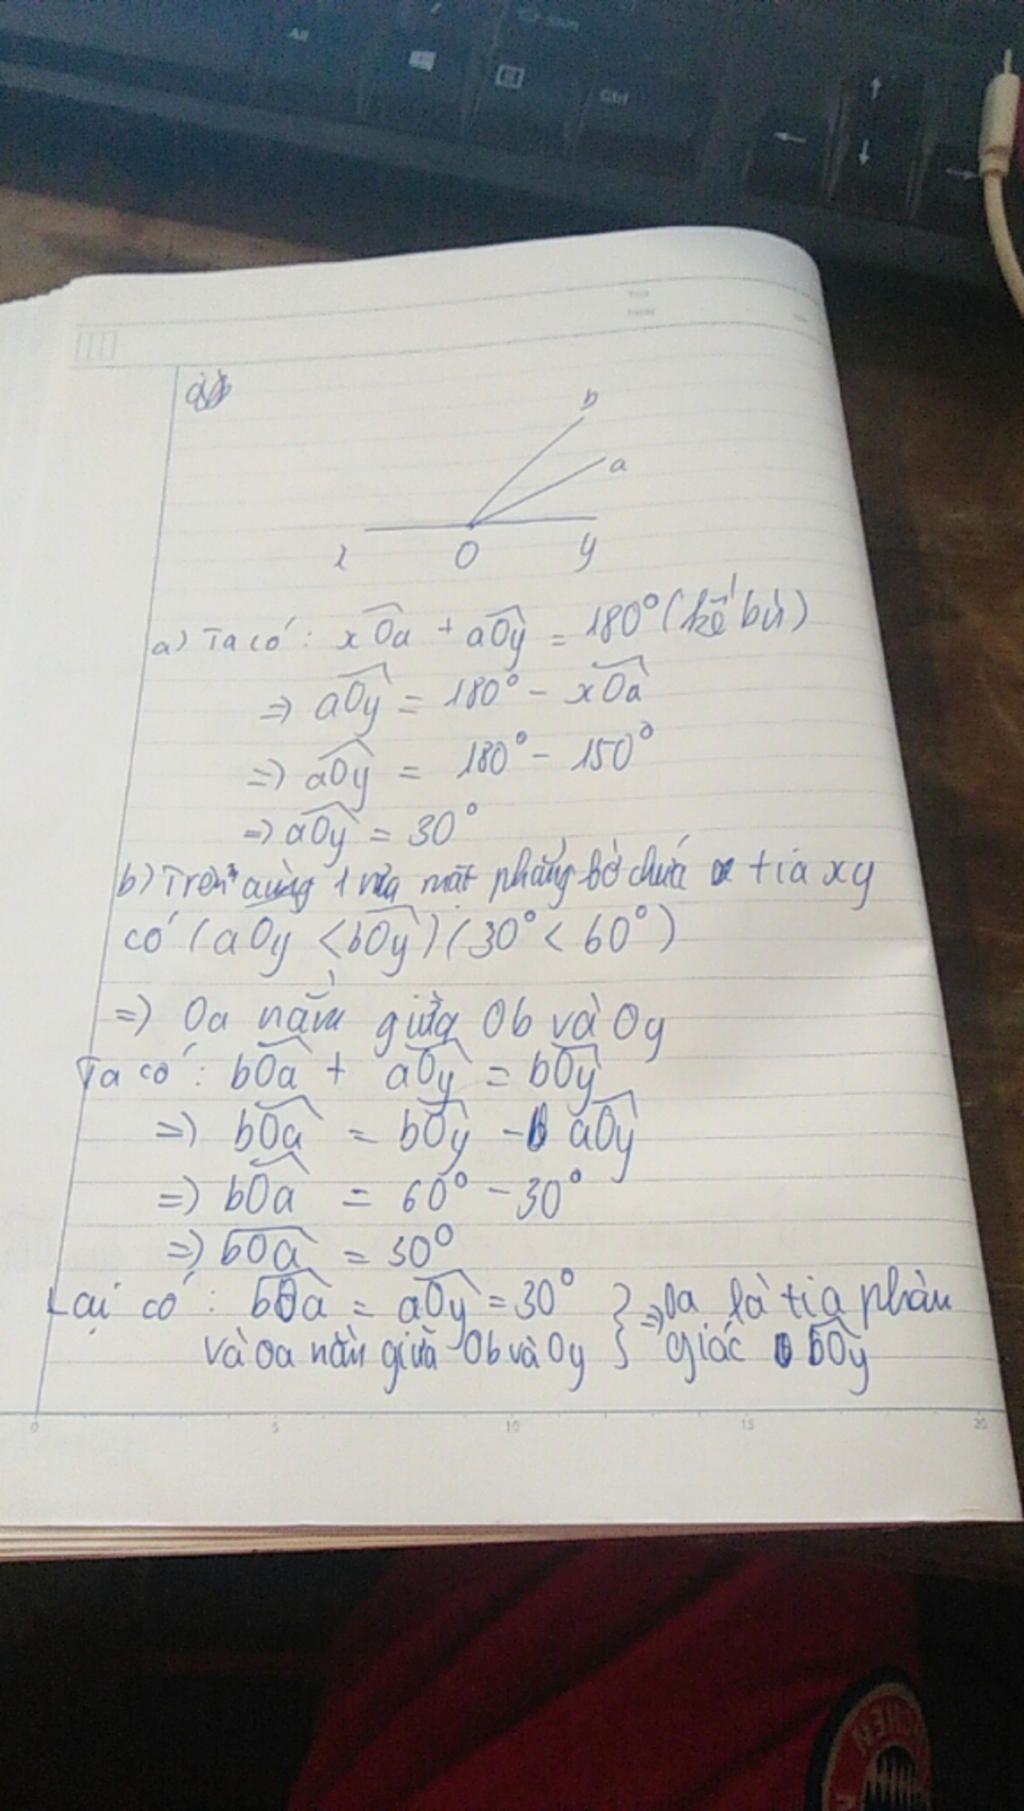 Alt
Ctrl
b
a
x O y
a) Ta có: xOa + aOy = 180° (kề bù)
=> aOy = 180° - xOa
=> aOy = 180° - 150°
=> aOy = 30°
b) Trên cùng 1 nửa mặt phẳng bờ chứa tia xy
có (aOy < bOy) (30° < 60°)
=> Oa nằm giữa Ob và Oy
Ta có: bOa + aOy = bOy
=> bOa = bOy - aOy
=> bOa = 60° - 30°
=> bOa = 30°
Lại có: bOa = aOy = 30° } => Oa là tia phân
và Oa nằm giữa Ob và Oy giác bOy
0 5 10 15 20